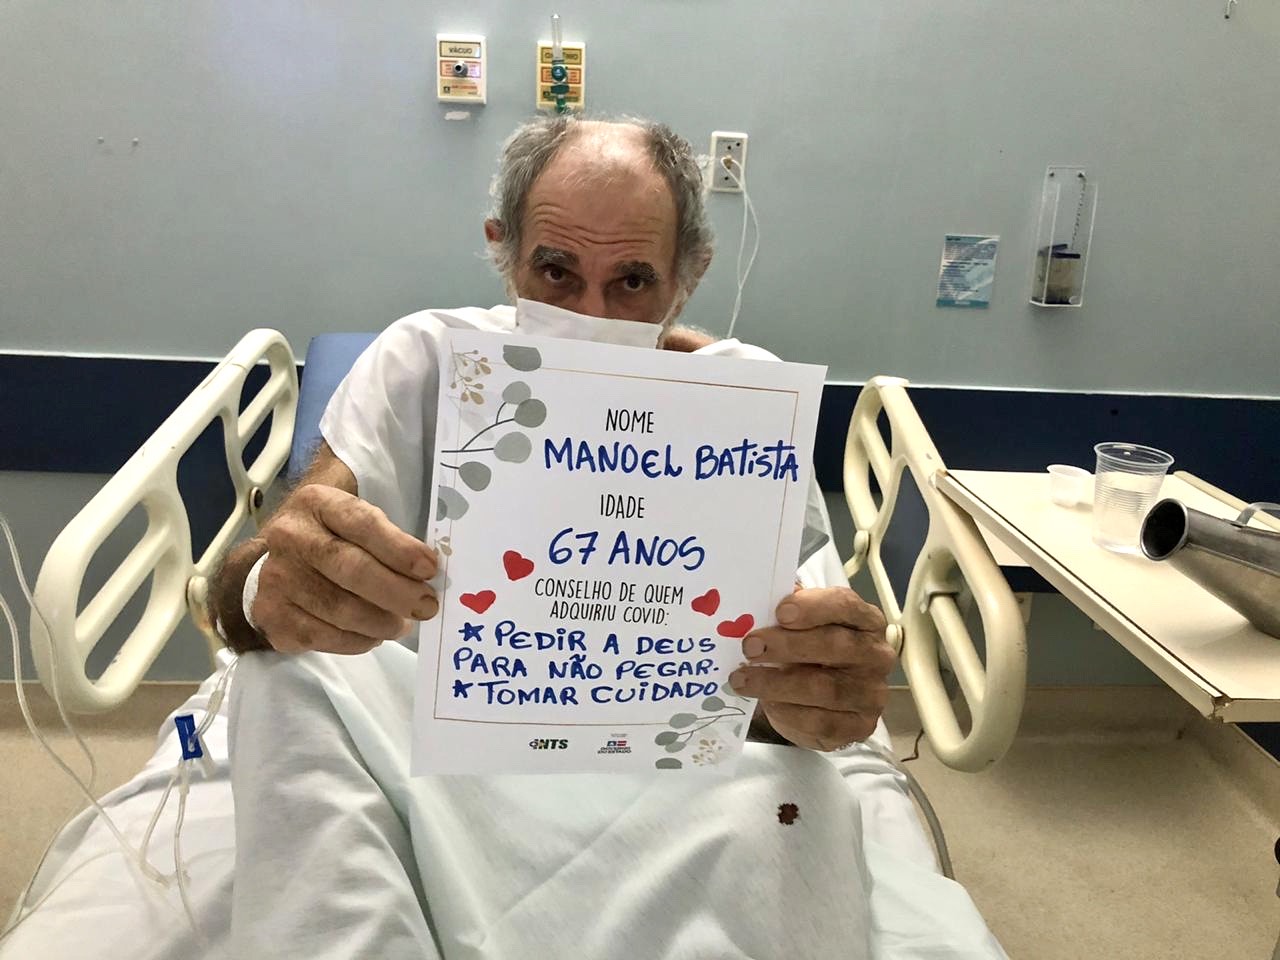 VÁCUO
NOME
MANOEL BATISTA
IDADE
67 ANOS
CONSELHO DE QUEM
ADQUIRIU COVID:
* PEDIR A DEUS
PARA NÃO PEGAR.
* TOMAR CUIDADO
INTS
GOVERNO
DO ESTADO